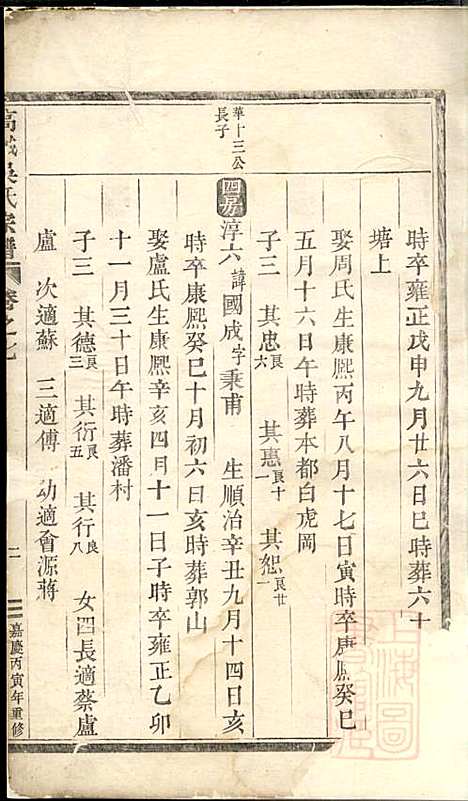 時卒雍正戊申九月廿六日巳時葬六十
塘上
娶周氏生康熙丙午八月十七日寅時卒康熙癸巳
五月十六日午時葬本都白虎岡
子三 其忠艮六 其惠艮十一 其恕艮廿一
華十三公長子
四房 淳六諱國成字秉甫 生順治辛丑九月十四日亥
時卒康熙癸巳十月初六日亥時葬郭山
娶盧氏生康熙辛亥四月十一日子時卒雍正乙卯
十一月三十日午時葬潘村
子三 其德艮三 其衍艮五 其行良八 女四長適蔡盧
盧 次適蘇 三適傅 幼適會源蔣
吳氏宗譜 卷之七 二 嘉慶丙寅年重修
上海圖